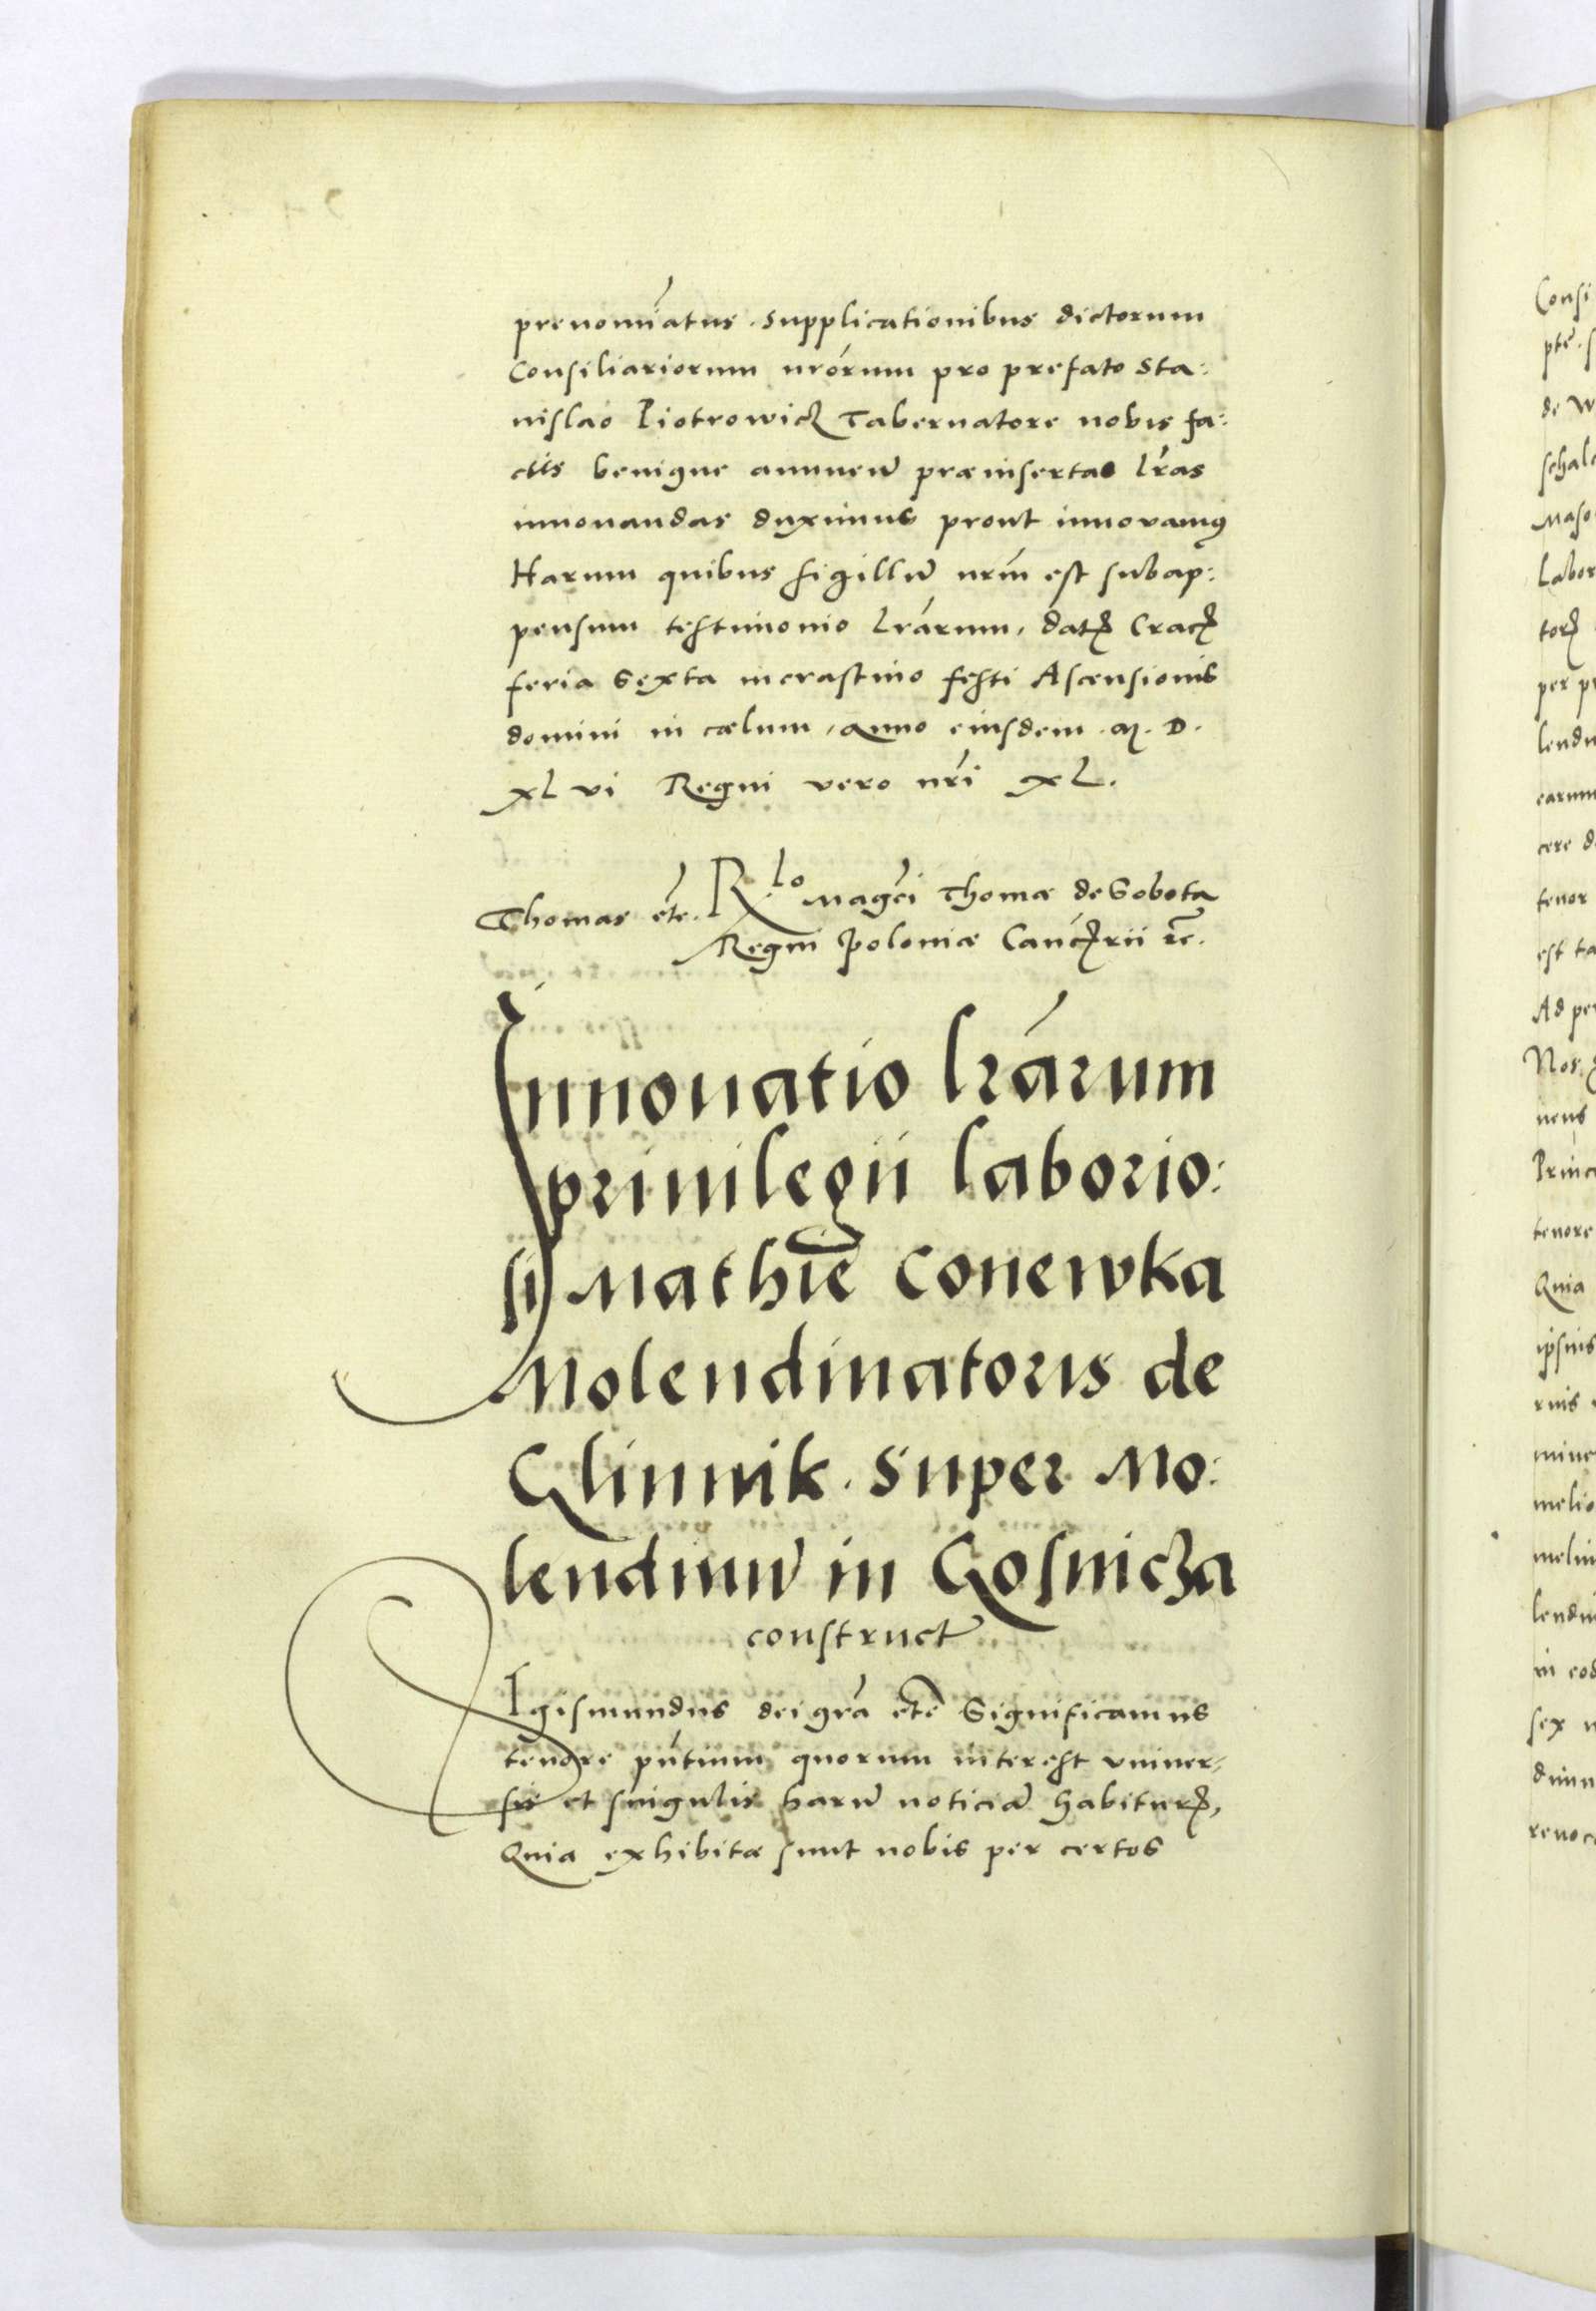 prenoíatus. supplicationibus dictorum
Consiliariorum nrórum pro prefato Sta:
nislao Piotrowicz Tabernatore nobis fa:
ctis benigne annueñ præinsertas lr̃as
innouandas duximus prout innovamꝰ
Harum quibus sigillũ nrm̃ est subap:
pensum testimonio lrárum, datꝫ Cracꝫ
feria Sexta incrastino festi Ascensionis
domini in cælum, anno eiusdem. M. D.
XL vi Regni vero nrĩ XL.
Thomas etc̃. R.lo Magc̃i Thomæ de Sobota
Regni Poloniæ Cancꝫrii rc̃.
Innouatio lrárum
priuilegii laborio:
si Mathiẽ Conewka
Molendinatoris de
Glinnik. super Mo:
lendinũ in Gosnicza
construct̃
SIgismundus dei grã etc̃ Significamus
tenore pñtium quorum interest vniuer-
sis et singulis harũ noticiã habiturꝫ,
Quia exhibitæ sunt nobis per certos
Consi
ptẽ. s
de W
schal
Maso
Labor
torꝫ
per pr
lendi
earum
cere d
tenor
est ta
Ad per
Nos. g
nens
Princ
tenore
Quia
ipsius
ruis
mine
melio
melin
lendi
in eod
sex n
dimi
reuoc